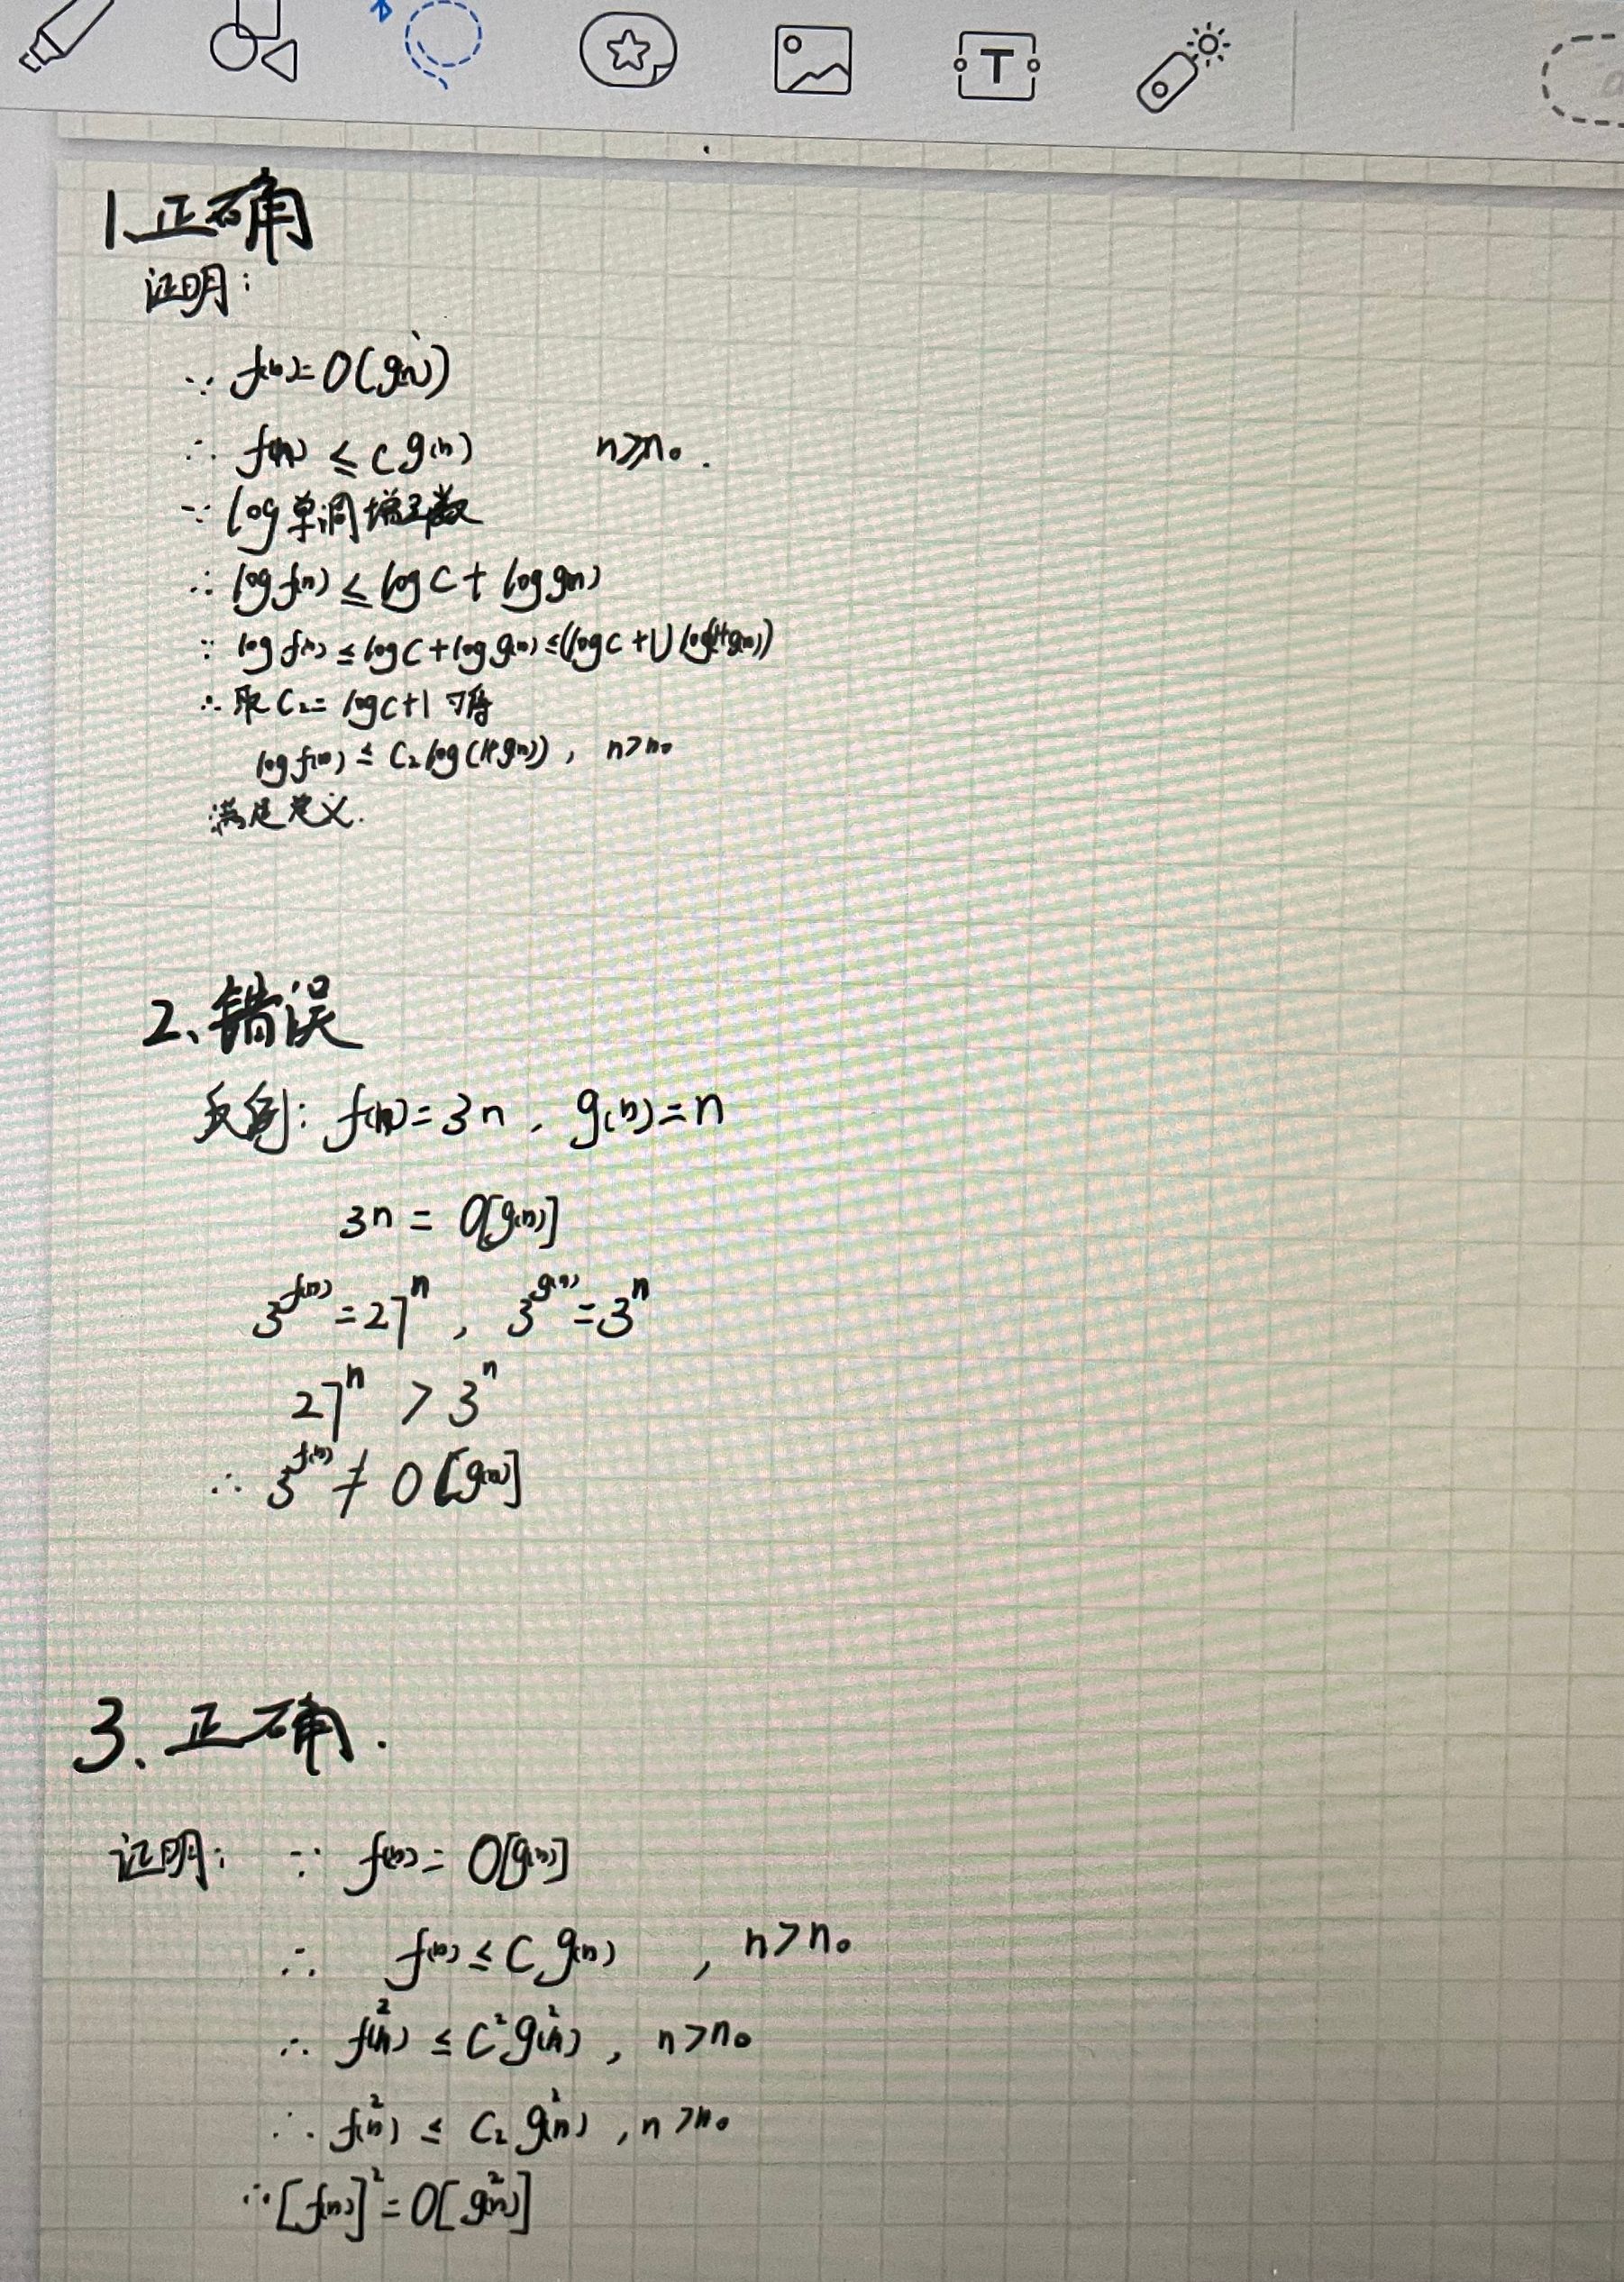 T
1.正确
证明:
∵ f(n)=O(g(n))
∴ f(n) ≤ c g(n) n≥n₀.
∵ log单调增函数
∴ log f(n) ≤ log c + log g(n)
∵ log f(n) ≤ log c + log g(n) ≤ (log c + 1) log(1+g(n))
∴ 取 C₂ = log c + 1 可得
log f(n) ≤ C₂ log(1+g(n)), n>n₀
满足定义.
2、错误
反例: f(n)=3n, g(n)=n
3n = O[g(n)]
3^f(n) = 27^n, 3^g(n) = 3^n
27^n > 3^n
∴ 3^f(n) ≠ O[g(n)]
3、正确.
证明: ∵ f(n) = O[g(n)]
∴ f(n) ≤ C g(n), n>n₀
∴ f²(n) ≤ C² g²(n), n>n₀
∴ f²(n) ≤ C₂ g²(n), n>n₀
∴ [f(n)]² = O[g²(n)]